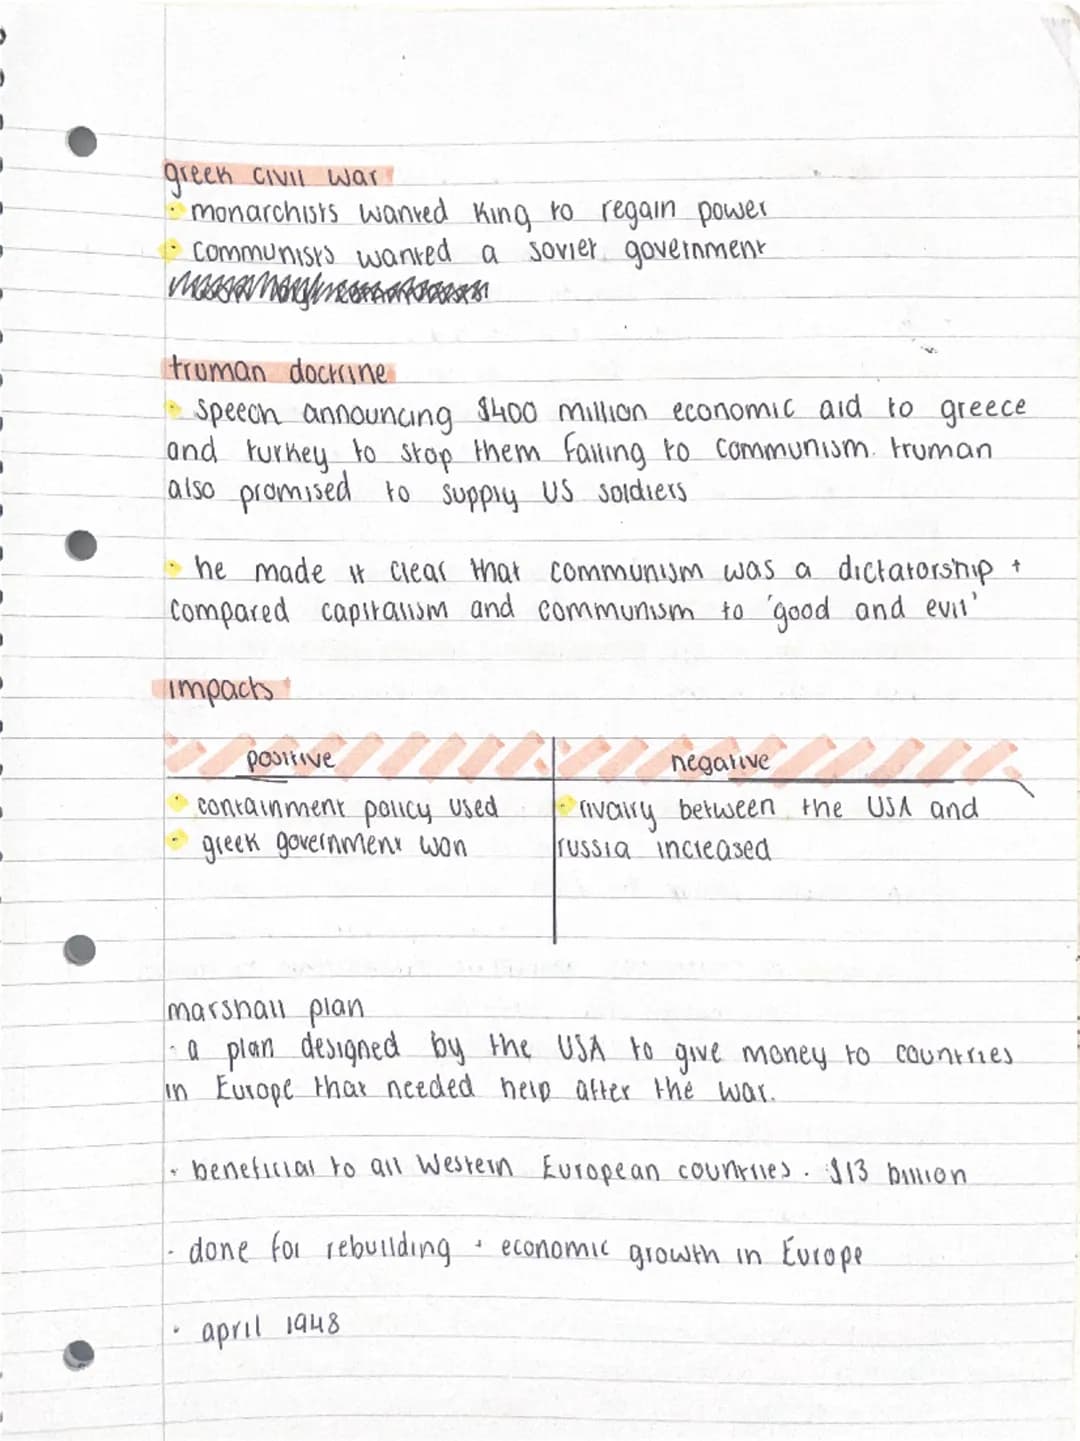 greek civil war
• monarchists wanted king to regain power
• communists wanted a soviet government
truman doctrine
• speech announcing $400 million economic aid to greece
and turkey to stop them falling to communism. truman
also promised to supply US soldiers
• he made it clear that communism was a dictatorship +
compared capitalism and communism to 'good and evil'
impacts
positive negative
• containment policy used • rivalry between the USA and
• greek government won russia increased
marshall plan
· a plan designed by the USA to give money to countries
in Europe that needed help after the war.
· beneficial to all Western European countries. $13 billion
· done for rebuilding + economic growth in Europe
· april 1948